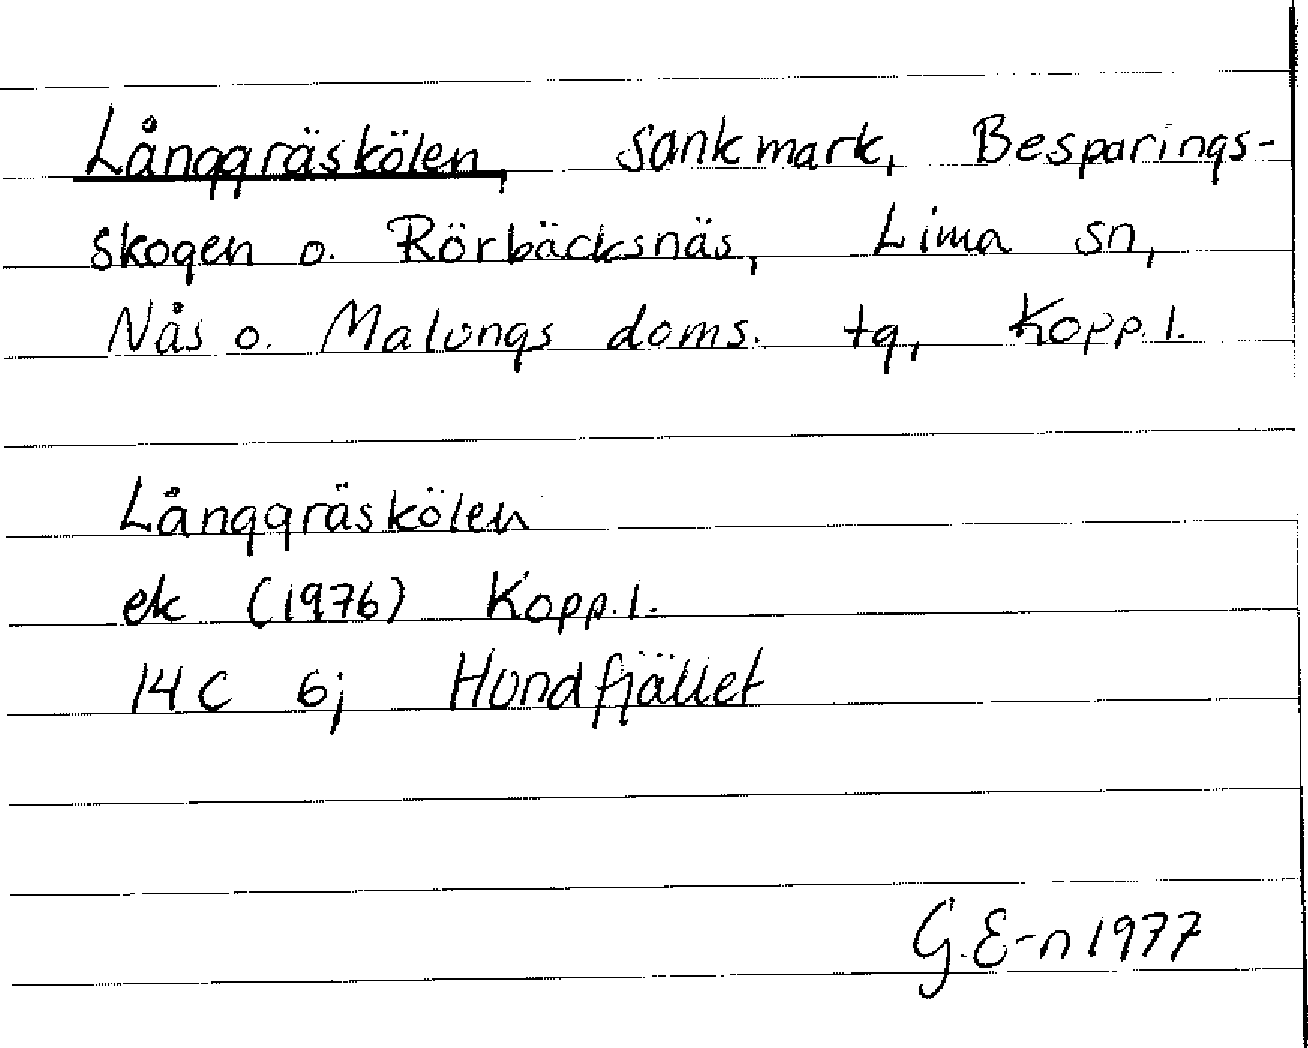 Långgräskölen, sankmark, Besparings-
skogen o. Rörbäcksnäs, Lima sn,
Nås o. Malungs doms. tg, Kopp. l.
Långgräskölen
ek (1976) Kopp. l.
14 C 6j Hundfjället
G. E-n 1977